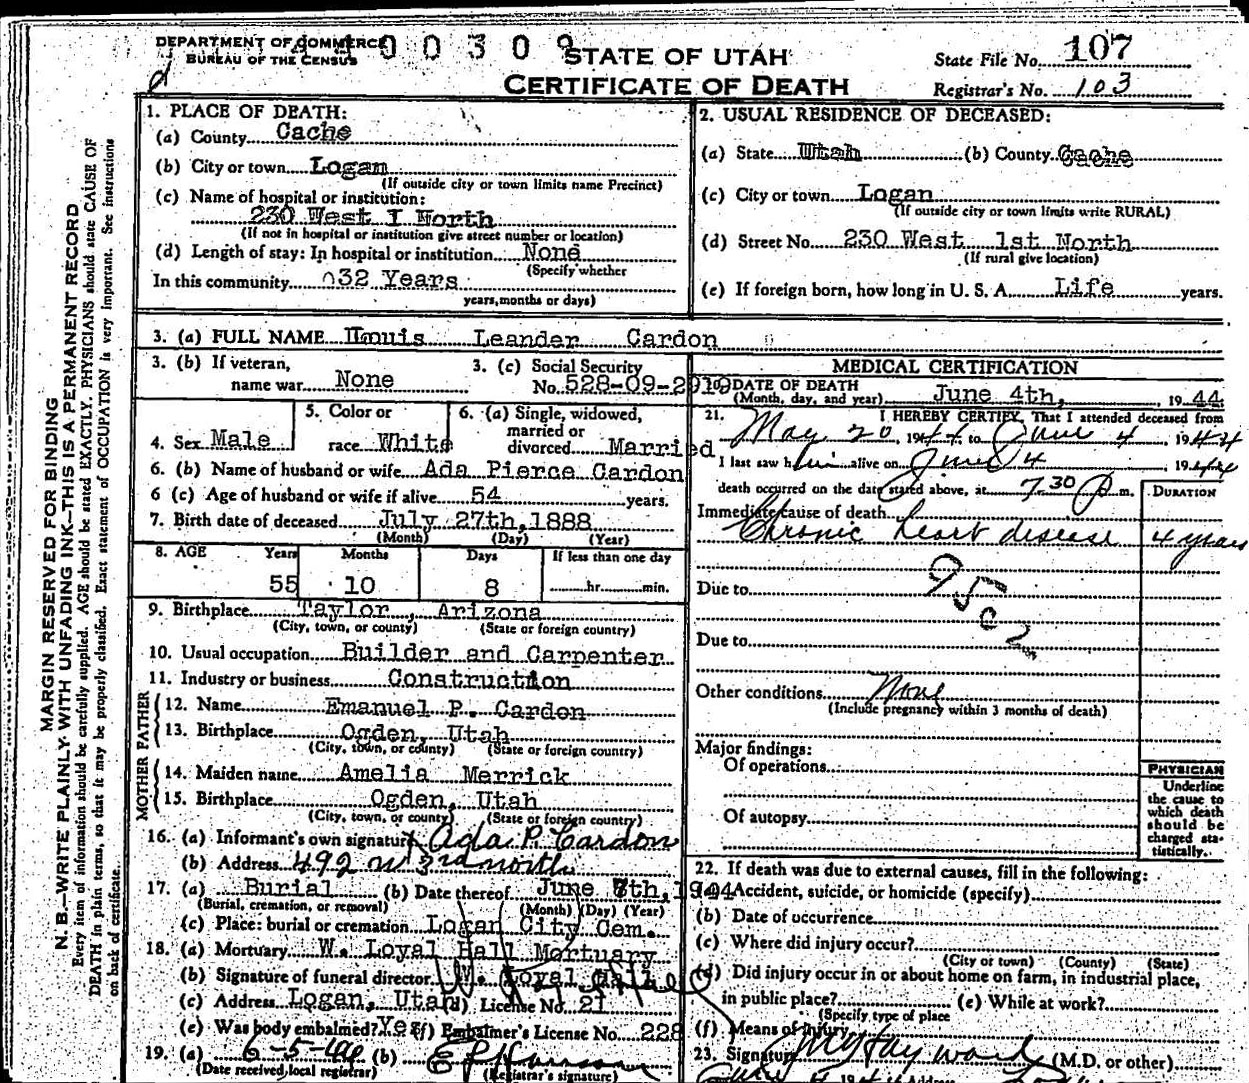 DEPARTMENT OF COMMERCE
BUREAU OF THE CENSUS
0 0 3 0 9
STATE OF UTAH
CERTIFICATE OF DEATH
State File No. 107
Registrar's No. 103
MARGIN RESERVED FOR BINDING
N. B.—WRITE PLAINLY WITH UNFADING INK—THIS IS A PERMANENT RECORD
Every item of information should be carefully supplied. AGE should be stated EXACTLY. PHYSICIANS should state CAUSE OF
DEATH in plain terms, so that it may be properly classified. Exact statement of OCCUPATION is very important. See instructions
on back of certificate.
1. PLACE OF DEATH:
(a) County Cache
(b) City or town Logan
(If outside city or town limits name Precinct)
(c) Name of hospital or institution:
230 West I North
(If not in hospital or institution give street number or location)
(d) Length of stay: In hospital or institution None
(Specify whether
In this community 32 Years
years, months or days)
2. USUAL RESIDENCE OF DECEASED:
(a) State Utah (b) County Cache
(c) City or town Logan
(If outside city or town limits write RURAL)
(d) Street No. 230 West 1st North
(If rural give location)
(e) If foreign born, how long in U. S. A. Life years.
3. (a) FULL NAME Louis Leander Cardon
3. (b) If veteran, name war None
3. (c) Social Security No. 528-09-2019
4. Sex Male
5. Color or race White
6. (a) Single, widowed, married or divorced Married
6. (b) Name of husband or wife Ada Pierce Cardon
6 (c) Age of husband or wife if alive 54 years.
7. Birth date of deceased July 27th, 1888
(Month) (Day) (Year)
8. AGE Years Months Days If less than one day
55 10 8 hr. min.
9. Birthplace Taylor, Arizona
(City, town, or county) (State or foreign country)
10. Usual occupation Builder and Carpenter
11. Industry or business Construction
FATHER
12. Name Emanuel P. Cardon
13. Birthplace Ogden, Utah
(City, town, or county) (State or foreign country)
MOTHER
14. Maiden name Amelia Merrick
15. Birthplace Ogden, Utah
(City, town, or county) (State or foreign country)
16. (a) Informant's own signature Ada P. Cardon
(b) Address 492 W 3rd north
17. (a) Burial (b) Date thereof June 7th, 1944
(Burial, cremation, or removal) (Month) (Day) (Year)
(c) Place: burial or cremation Logan City Cem.
18. (a) Mortuary W. Loyal Hall Mortuary
(b) Signature of funeral director W. Loyal Hall
(c) Address Logan, Utah (d) License No 21
(e) Was body embalmed? Yes (f) Embalmer's License No. 228
19. (a) 6-5-44 (b)
(Date received local registrar) (Registrar's signature)
MEDICAL CERTIFICATION
20. DATE OF DEATH
(Month, day, and year) June 4th, 19 44
21. I HEREBY CERTIFY, That I attended deceased from
May 20, 1944 to June 4, 1944
I last saw him alive on June 4, 1944
death occurred on the date stated above, at 7.30 P m.
DURATION
Immediate cause of death
Chronic heart disease 4 years
Due to
95c2
Due to
Other conditions None
(Include pregnancy within 3 months of death)
Major findings:
Of operations
Of autopsy
PHYSICIAN
Underline
the cause to
which death
should be
charged sta-
tistically.
22. If death was due to external causes, fill in the following:
(a) Accident, suicide, or homicide (specify)
(b) Date of occurrence
(c) Where did injury occur?
(City or town) (County) (State)
(d) Did injury occur in or about home on farm, in industrial place,
in public place? (e) While at work?
(Specify type of place
(f) Means of injury
23. Signature Hayward (M.D. or other)